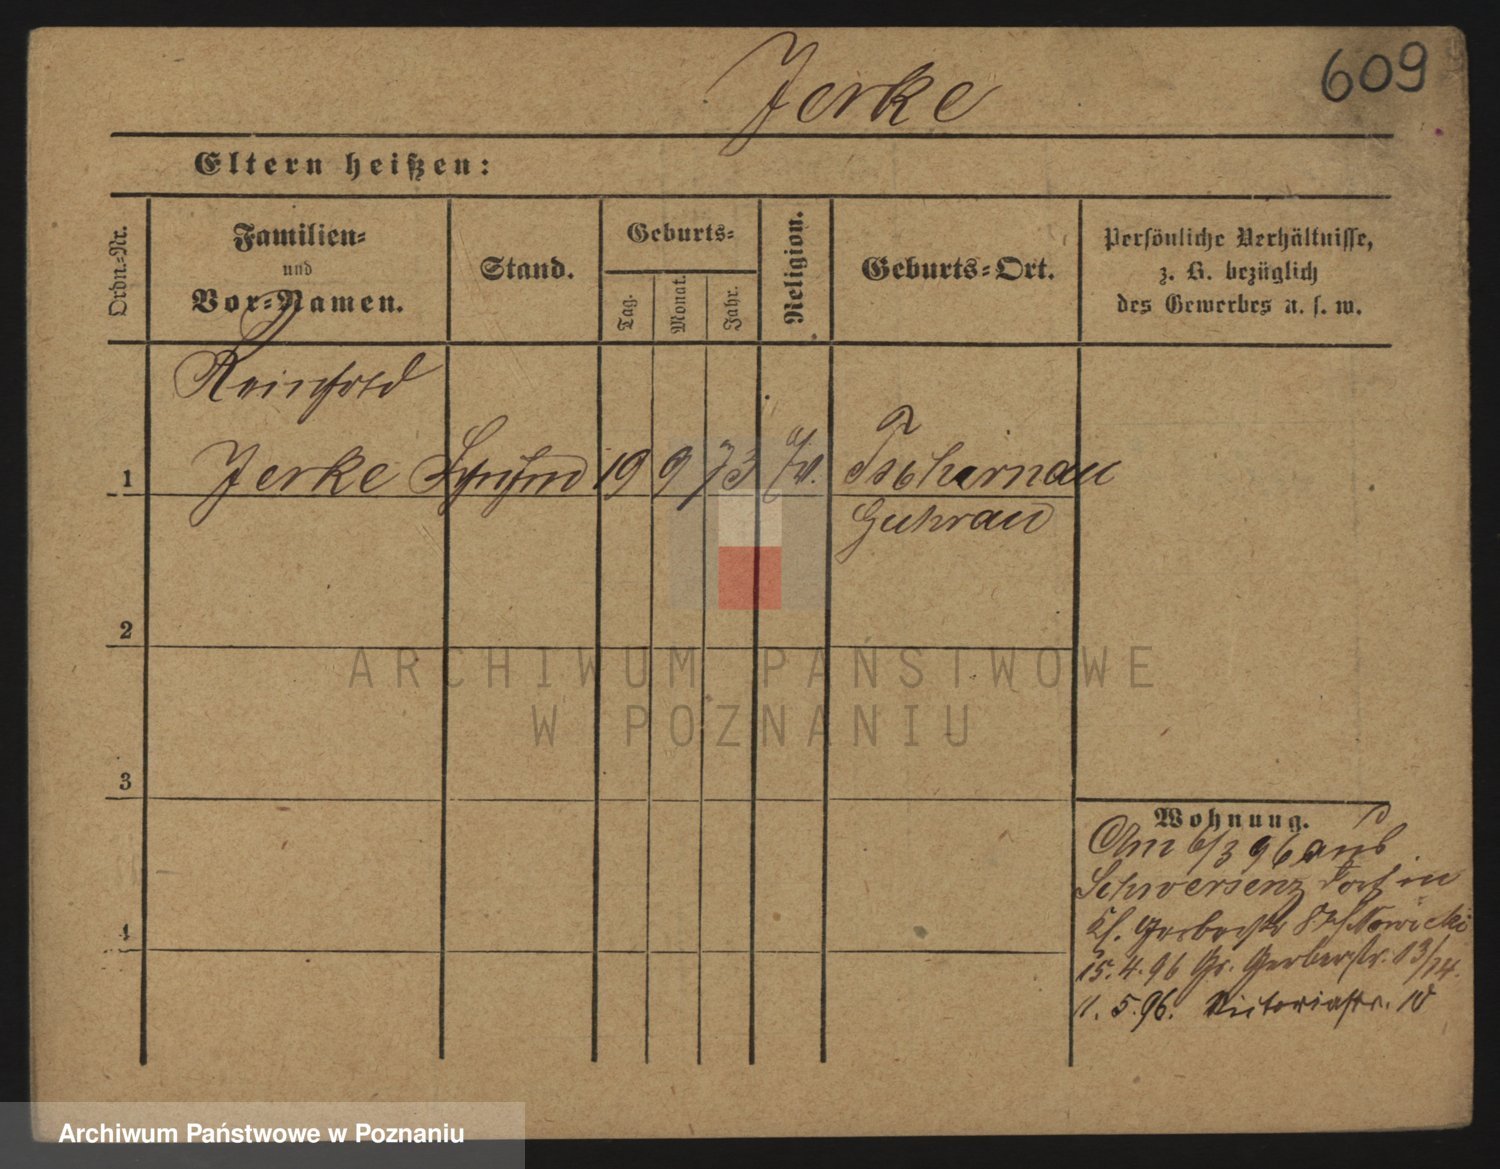 Jerke
609
Eltern heißen:
Ordn.-Nr.
Familien-
und
Vor-Namen.
Stand.
Geburts-
Tag.
Monat.
Jahr.
Religion.
Geburts-Ort.
Persönliche Verhältnisse,
z. B. bezüglich
des Gewerbes u. s. w.
Reinhold
1 Jerke 19 9 73 Tschirnau
Guhrau
2
ARCHIWUM PAŃSTWOWE
W POZNANIU
3
Wohnung.
Am 6/3 96 aus
Schwersenz in
4
Kl. Gerberstr 8 Nowicki
15. 4. 96 Gr. Gerberstr. 13/14.
1. 5. 96. Victoriastr. 10
Archiwum Państwowe w Poznaniu